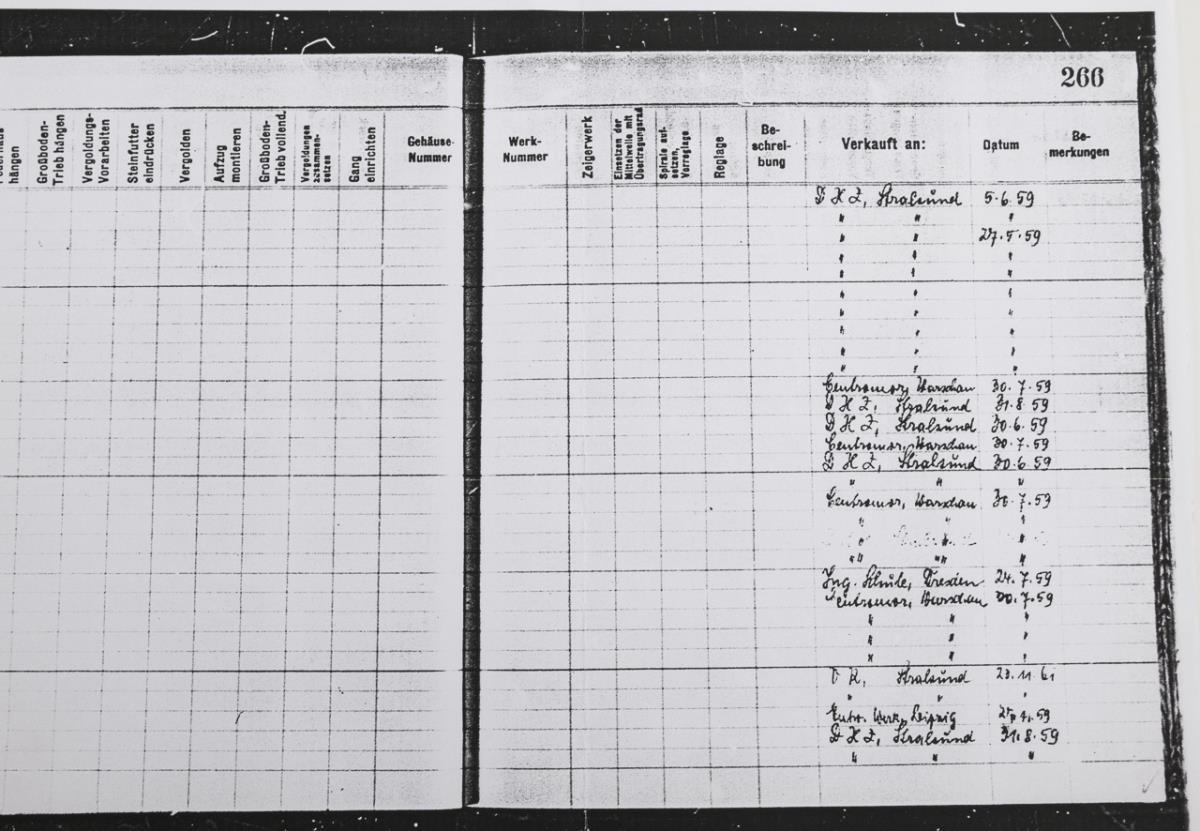 266
hängen
Großboden-
Trieb hängen
Vergoldungs-
Vorarbeiten
Steinfutter
eindrücken
Vergolden
Aufzug
montieren
Großboden-
Trieb vollend.
Vergoldungen
zusammen-
setzen
Gang
einrichten
Gehäuse-
Nummer
Werk-
Nummer
Zeigerwerk
Einsetzen der
Mittelwelle mit
Übertragungsrad
Spirale auf-
setzen,
Vorreglage
Reglage
Be-
schrei-
bung
Verkauft an:
Datum
Be-
merkungen
D H Z, Stralsund 5.6.59
" " "
" " 27.5.59
" " "
" " "
" " "
" " "
" " "
" " "
" " "
Centromor, Warschau 30.7.59
D H Z, Stralsund 31.8.59
D H Z, Stralsund 30.6.59
Centromor, Warschau 30.7.59
D H Z, Stralsund 30.6.59
" " "
Centromor, Warschau 30.7.59
" " "
" " "
" " "
Ing. Dresden 24.7.59
Centromor, Warschau 30.7.59
" " "
" " "
" " "
Stralsund 23.11.61
" " "
Leipzig
D H Z, Stralsund 31.8.59
" " "